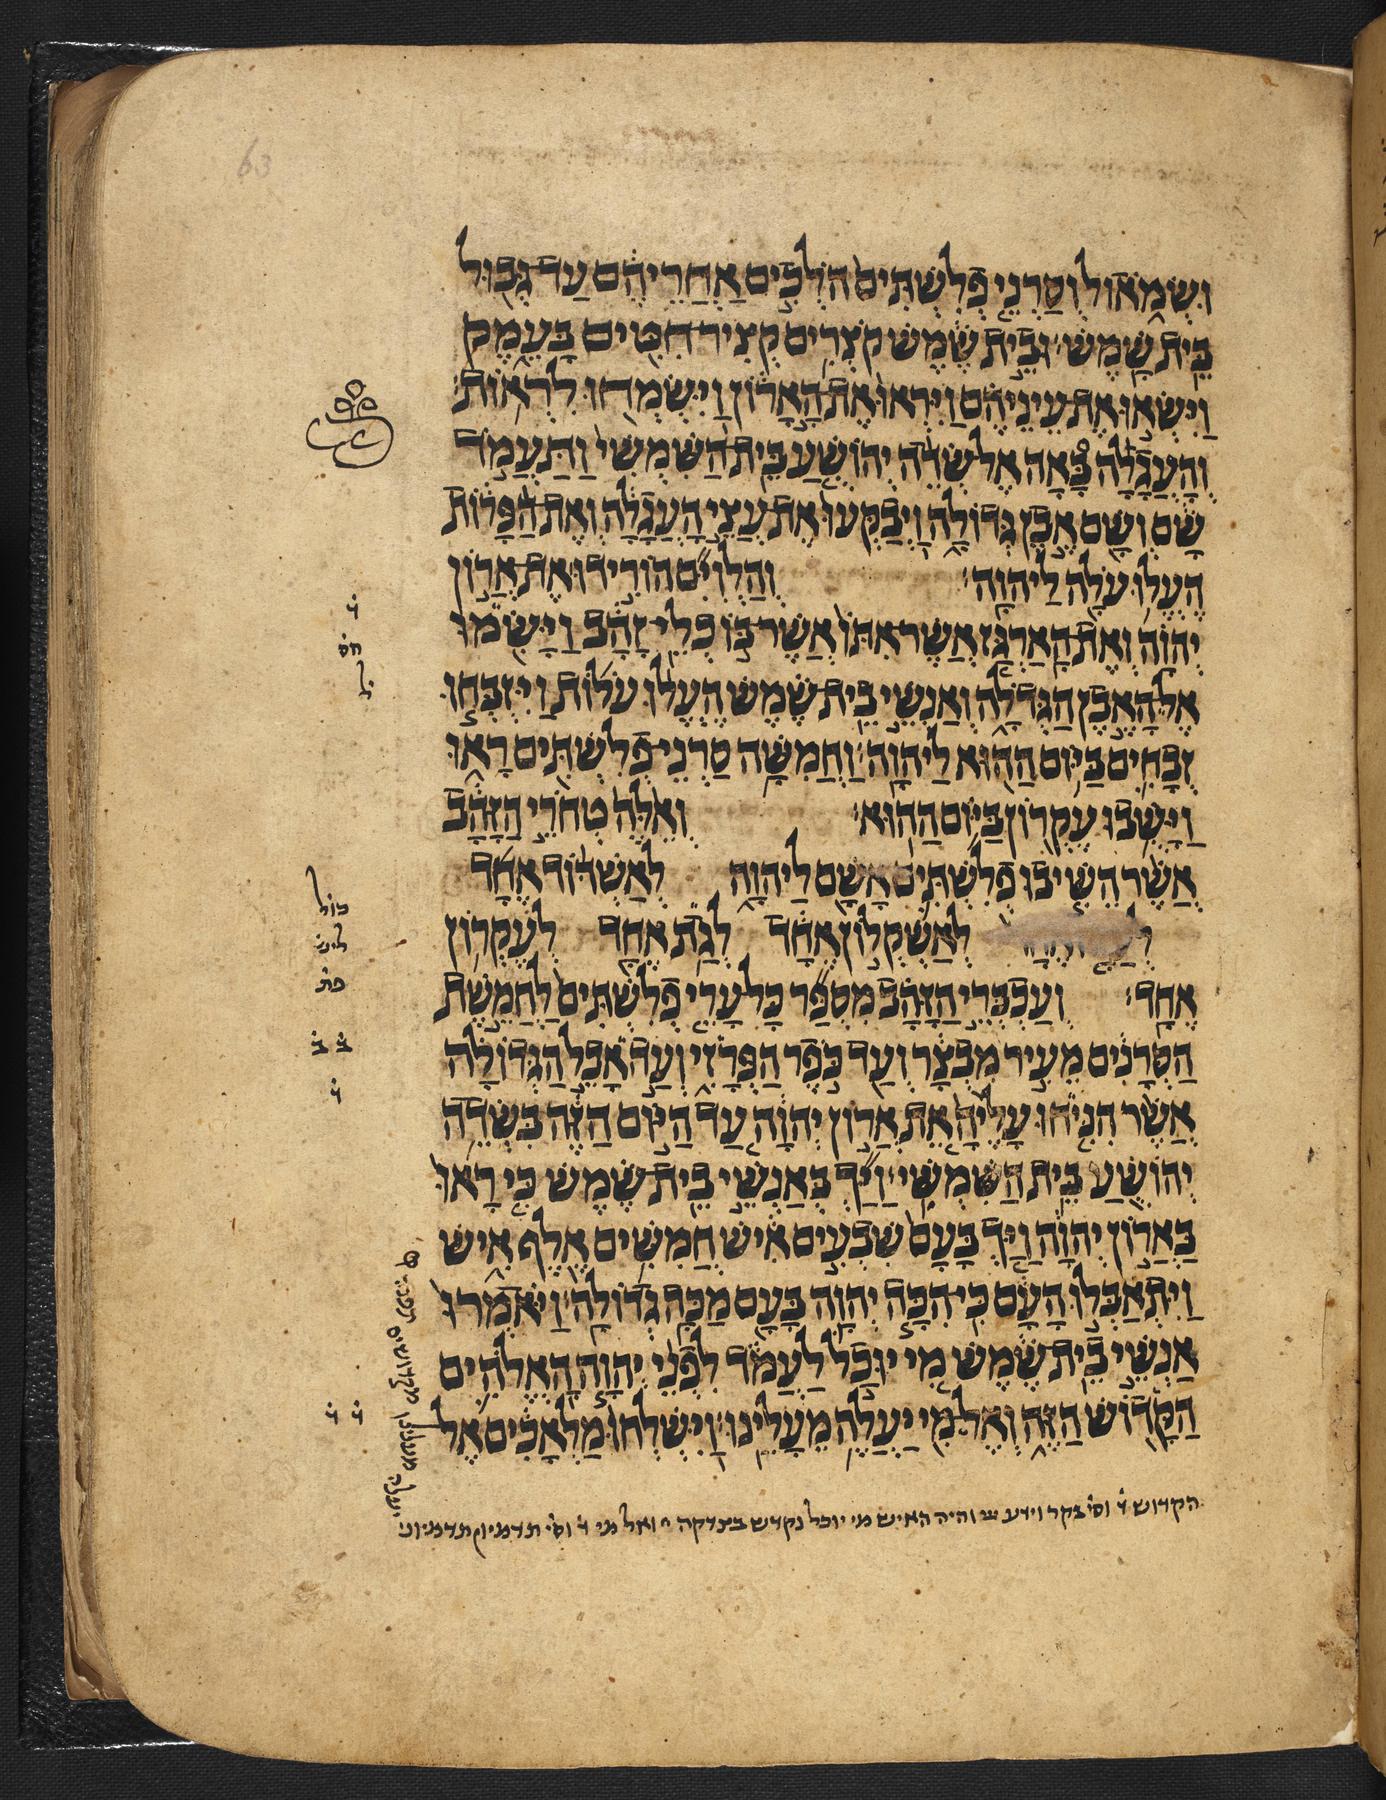 63
וּשְׂמֹאול וְסַרְנֵי פְלִשְׁתִּים הֹלְכִים אַחֲרֵיהֶם עַד גְּבוּל
בֵּית שָׁמֶשׁ׃ וּבֵית שֶׁמֶשׁ קֹצְרִים קְצִיר חִטִּים בָּעֵמֶק
וַיִּשְׂאוּ אֶת עֵינֵיהֶם וַיִּרְאוּ אֶת הָאָרוֹן וַיִּשְׂמְחוּ לִרְאוֹת׃
וְהָעֲגָלָה בָּאָה אֶל שְׂדֵה יְהוֹשֻׁעַ בֵּית הַשִּׁמְשִׁי וַתַּעֲמֹד
שָׁם וְשָׁם אֶבֶן גְּדוֹלָה וַיְבַקְּעוּ אֶת עֲצֵי הָעֲגָלָה וְאֶת הַפָּרוֹת
הֶעֱלוּ עֹלָה לַיהוָה׃ וְהַלְוִיִּם הוֹרִידוּ אֶת אֲרוֹן
יְהוָה וְאֶת הָאַרְגַּז אֲשֶׁר אִתּוֹ אֲשֶׁר בּוֹ כְלֵי זָהָב וַיָּשִׂמוּ
אֶל הָאֶבֶן הַגְּדֹלָה וְאַנְשֵׁי בֵית שֶׁמֶשׁ הֶעֱלוּ עֹלוֹת וַיִּזְבְּחוּ
זְבָחִים בַּיּוֹם הַהוּא לַיהוָה׃ וַחֲמִשָּׁה סַרְנֵי פְלִשְׁתִּים רָאוּ
וַיָּשֻׁבוּ עֶקְרוֹן בַּיּוֹם הַהוּא׃ וְאֵלֶּה טְחֹרֵי הַזָּהָב
אֲשֶׁר הֵשִׁיבוּ פְלִשְׁתִּים אָשָׁם לַיהוָה לְאַשְׁדּוֹד אֶחָד
לְאַשְׁקְלוֹן אֶחָד לְגַת אֶחָד לְעֶקְרוֹן
אֶחָד׃ וְעַכְבְּרֵי הַזָּהָב מִסְפַּר כָּל עָרֵי פְלִשְׁתִּים לַחֲמֵשֶׁת
הַסְּרָנִים מֵעִיר מִבְצָר וְעַד כֹּפֶר הַפְּרָזִי וְעַד אָבֵל הַגְּדוֹלָה
אֲשֶׁר הִנִּיחוּ עָלֶיהָ אֵת אֲרוֹן יְהוָה עַד הַיּוֹם הַזֶּה בִּשְׂדֵה
יְהוֹשֻׁעַ בֵּית הַשִּׁמְשִׁי׃ וַיַּךְ בְּאַנְשֵׁי בֵית שֶׁמֶשׁ כִּי רָאוּ
בַּאֲרוֹן יְהוָה וַיַּךְ בָּעָם שִׁבְעִים אִישׁ חֲמִשִּׁים אֶלֶף אִישׁ
וַיִּתְאַבְּלוּ הָעָם כִּי הִכָּה יְהוָה בָּעָם מַכָּה גְדוֹלָה׃ וַיֹּאמְרוּ
אַנְשֵׁי בֵית שֶׁמֶשׁ מִי יוּכַל לַעֲמֹד לִפְנֵי יְהוָה הָאֱלֹהִים
הַקָּדוֹשׁ הַזֶּה וְאֶל מִי יַעֲלֶה מֵעָלֵינוּ׃ וַיִּשְׁלְחוּ מַלְאָכִים אֶל
הקדוש ד׳ וסי׳ בקר וידע והיה האיש מי יוכל נקדש בצדקה ואל מי ד׳ וסי׳ תדמיון תדמיוני
ד׳
חס׳
ל׳
ב׳ ב׳
ד׳
ד׳ ד׳